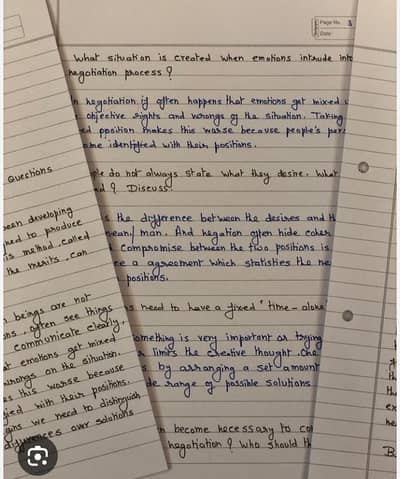 Page No. 3
Date
What situation is created when emotions intrude into
negotiation process ?
In negotiation it often happens that emotions get mixed
objective rights and wrongs of the situation. Taking
position makes this worse because people's
identified with their positions.
do not always state what they desire. What
? Discuss
the difference between the desires and
mean/ man. And negation often hide
compromise between the two positions is
a agreement which statisties the ne
positions.
need to have a fixed " time - alone
something is very important as trying
limits the creative thought. One
by arranging a set amount
range of possible solutions
become necessary to co
negotiation ? Who should th
Questions
been developing
to produce
is method, called
the merits, can
beings are not
often see things
communicate clearly,
emotions get mixed
wrongs on the situation.
this worse because
with their positions.
we need to distinguish
differences over solutions
th
th
ex
he
B